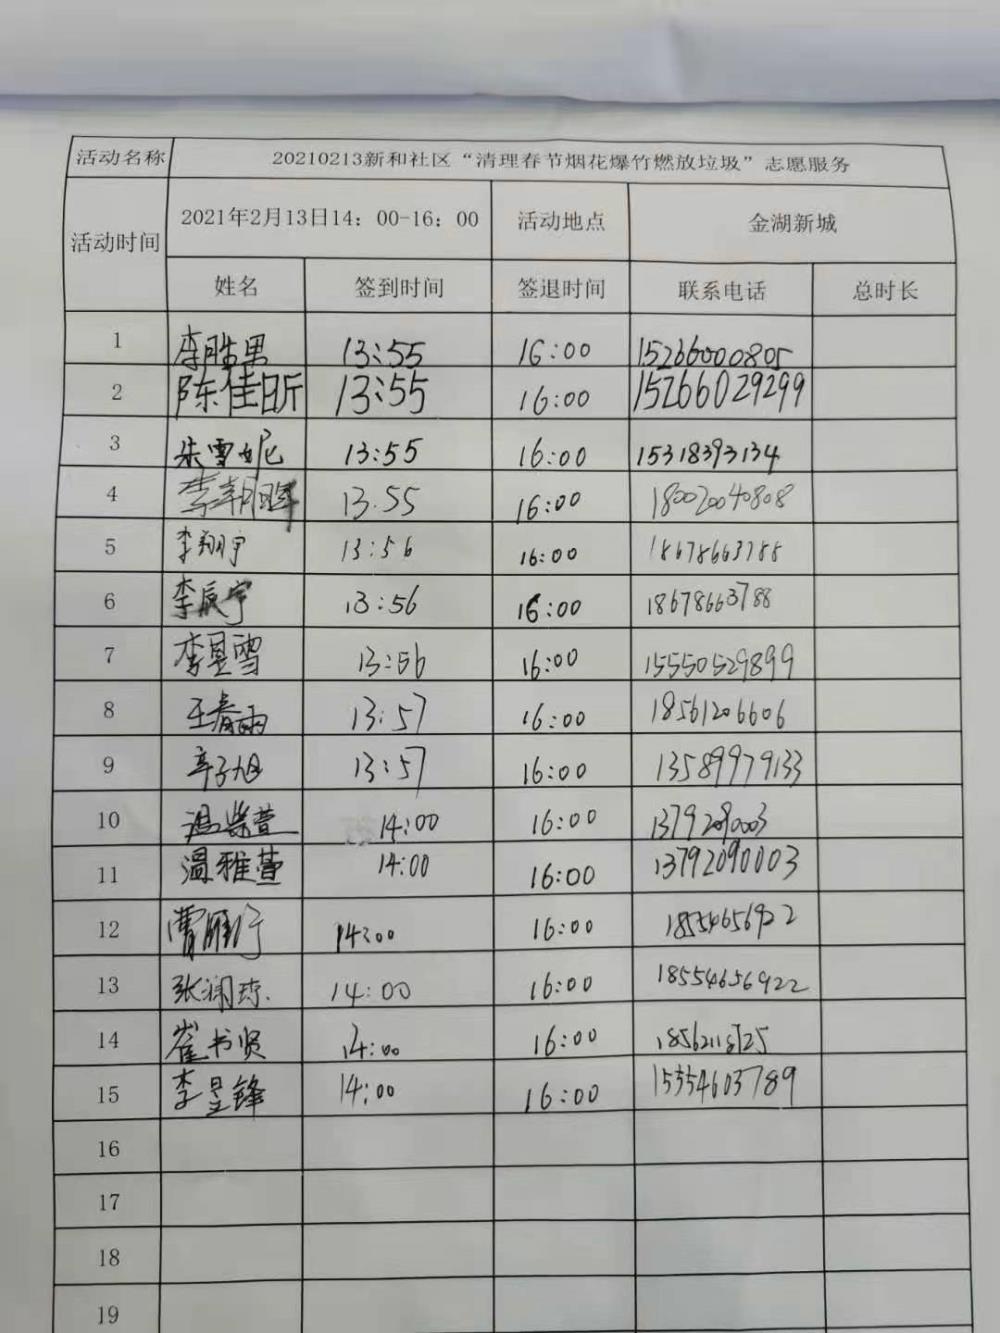 活动名称 20210213新和社区“清理春节烟花爆竹燃放垃圾”志愿服务
活动时间 2021年2月13日14：00-16：00 活动地点 金湖新城
姓名 签到时间 签退时间 联系电话 总时长
1 李胜男 13:55 16:00 15266000805
2 陈佳昕 13:55 16:00 15266029299
3 朱雪妮 13:55 16:00 15318393134
4 李朝晖 13.55 16:00 18002040808
5 李翔宇 13:56 16:00 18678663788
6 李辰宇 13:56 16:00 18678663788
7 李昱雪 13:56 16:00 15550529899
8 王春雨 13:57 16:00 18561206606
9 辛子旭 13:57 16:00 13589979133
10 14:00 16:00 13792090003
11 温雅萱 14:00 16:00 13792090003
12 14:00 16:00 18554656922
13 14:00 16:00 18554656922
14 崔书贤 14:00 16:00
15 李昱锋 14:00 16:00 15354603789
16
17
18
19